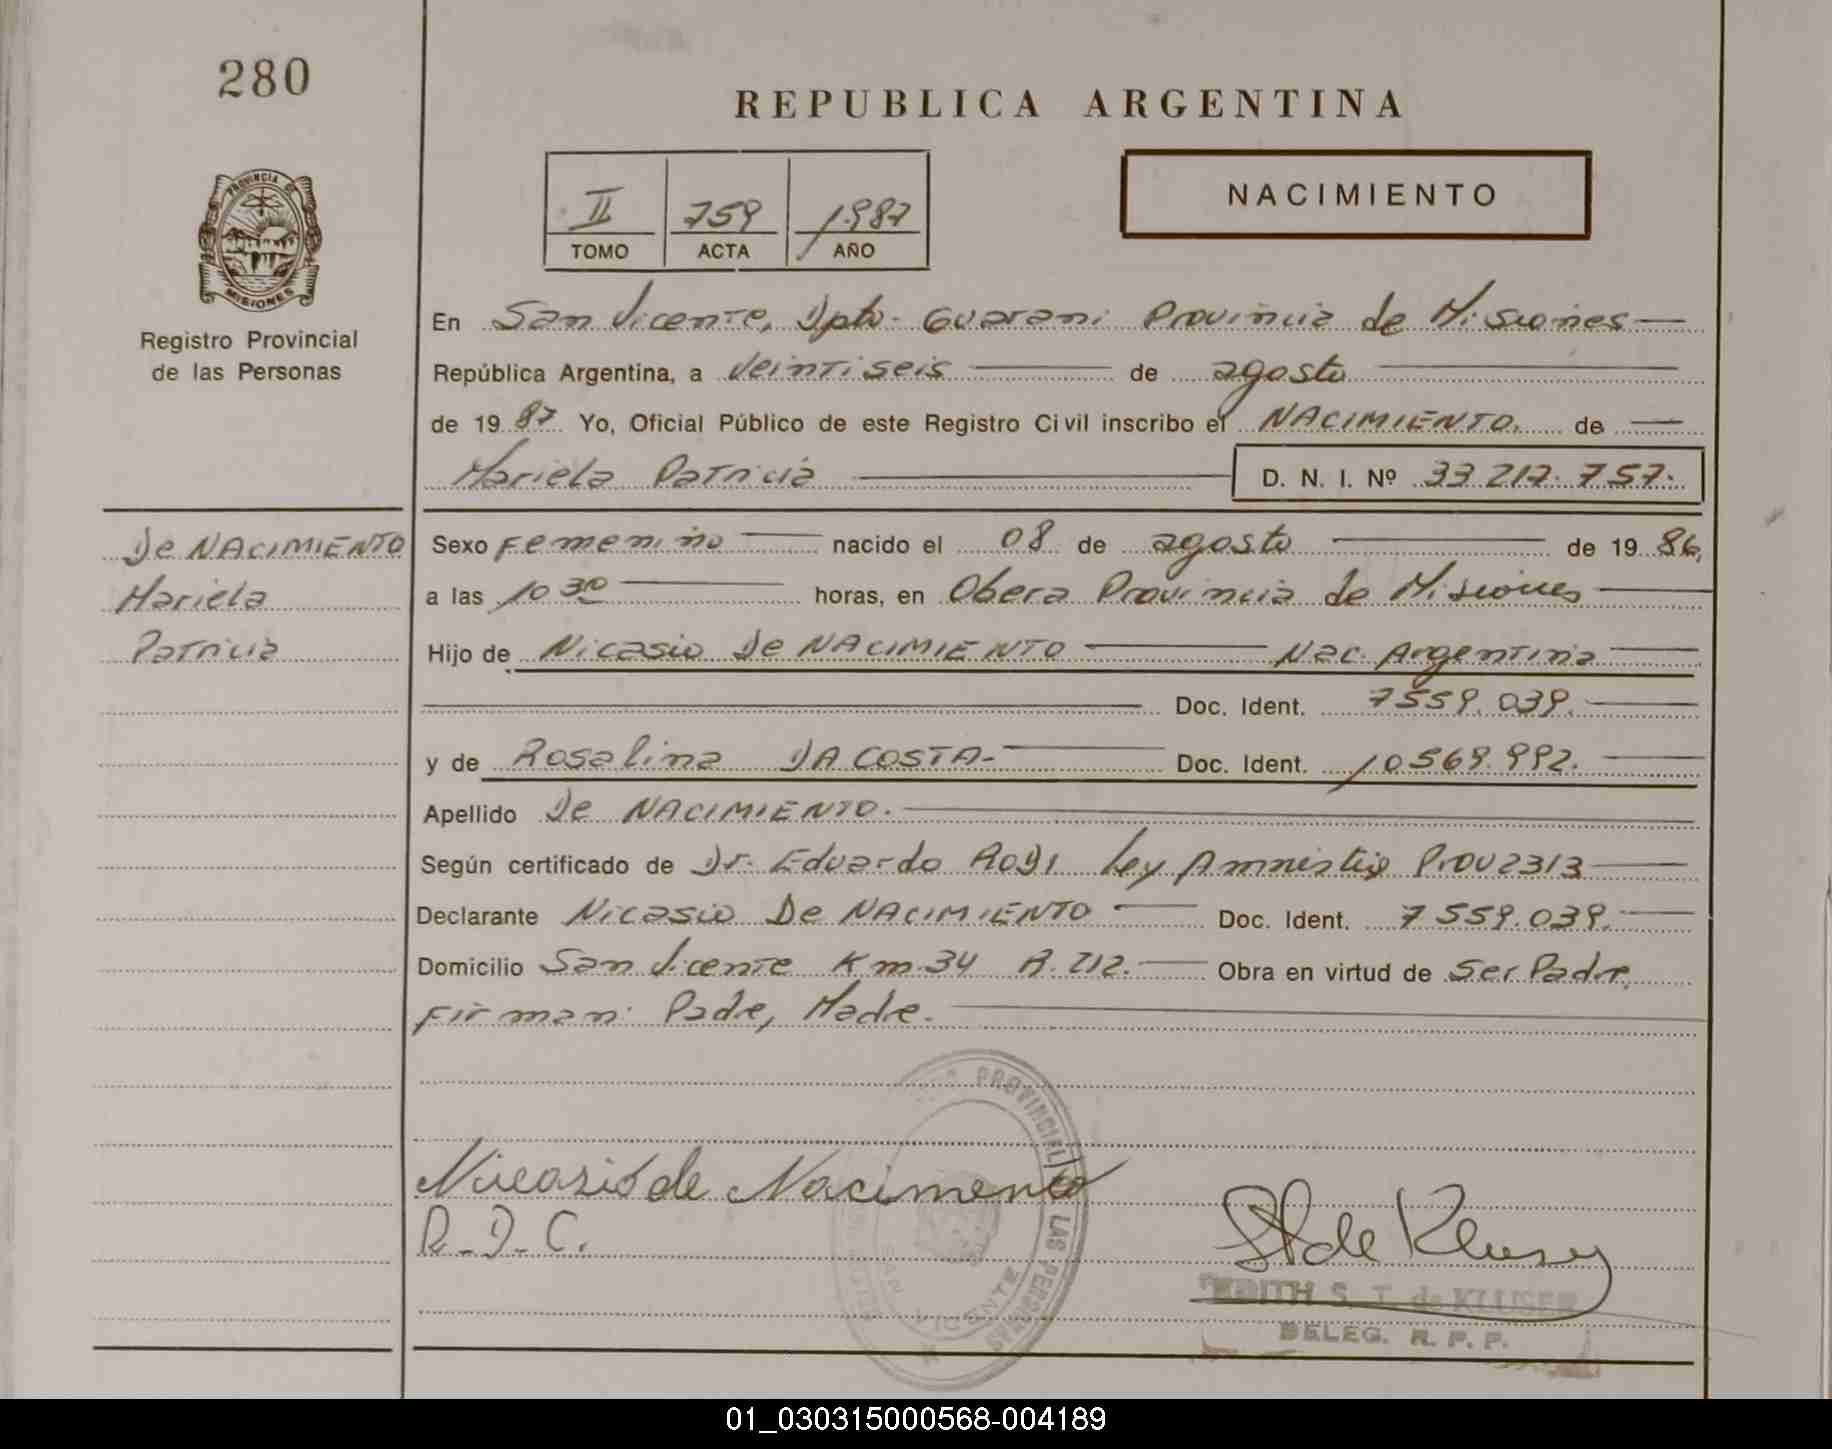 280
REPUBLICA ARGENTINA
II 759 1987
TOMO ACTA AÑO
NACIMIENTO
PROVINCIA DE
MISIONES
Registro Provincial
de las Personas
En San Vicente, Dpto. Guarani Provincia de Misiones
República Argentina, a veintiseis de agosto
de 1987. Yo, Oficial Público de este Registro Civil inscribo el NACIMIENTO. de
Mariela Patricia D. N. I. Nº 33 217. 757.
De NACIMIENTO
Mariela
Patricia
Sexo Femenino nacido el 08 de agosto de 1986,
a las 10 30 horas, en Obera Provincia de Misiones
Hijo de Nicasio De NACIMIENTO Nac. Argentina
Doc. Ident. 7559.039.
y de Rosalina DA COSTA- Doc. Ident. 10569.992.
Apellido De NACIMIENTO.
Según certificado de Dr. Eduardo Ley Amnistia Prov 2313
Declarante Nicasio De NACIMIENTO Doc. Ident. 7559.039.
Domicilio San Vicente Km 34 R. 212. Obra en virtud de Ser Padre,
Firman: Padre, Madre.
Nicasio de Nacimento
R-D-C.
PROVINCIAL LAS PERSONAS
SAN VICENTE
EDITH S. T. de KLUSER
DELEG. R. P. P.
01_030315000568-004189